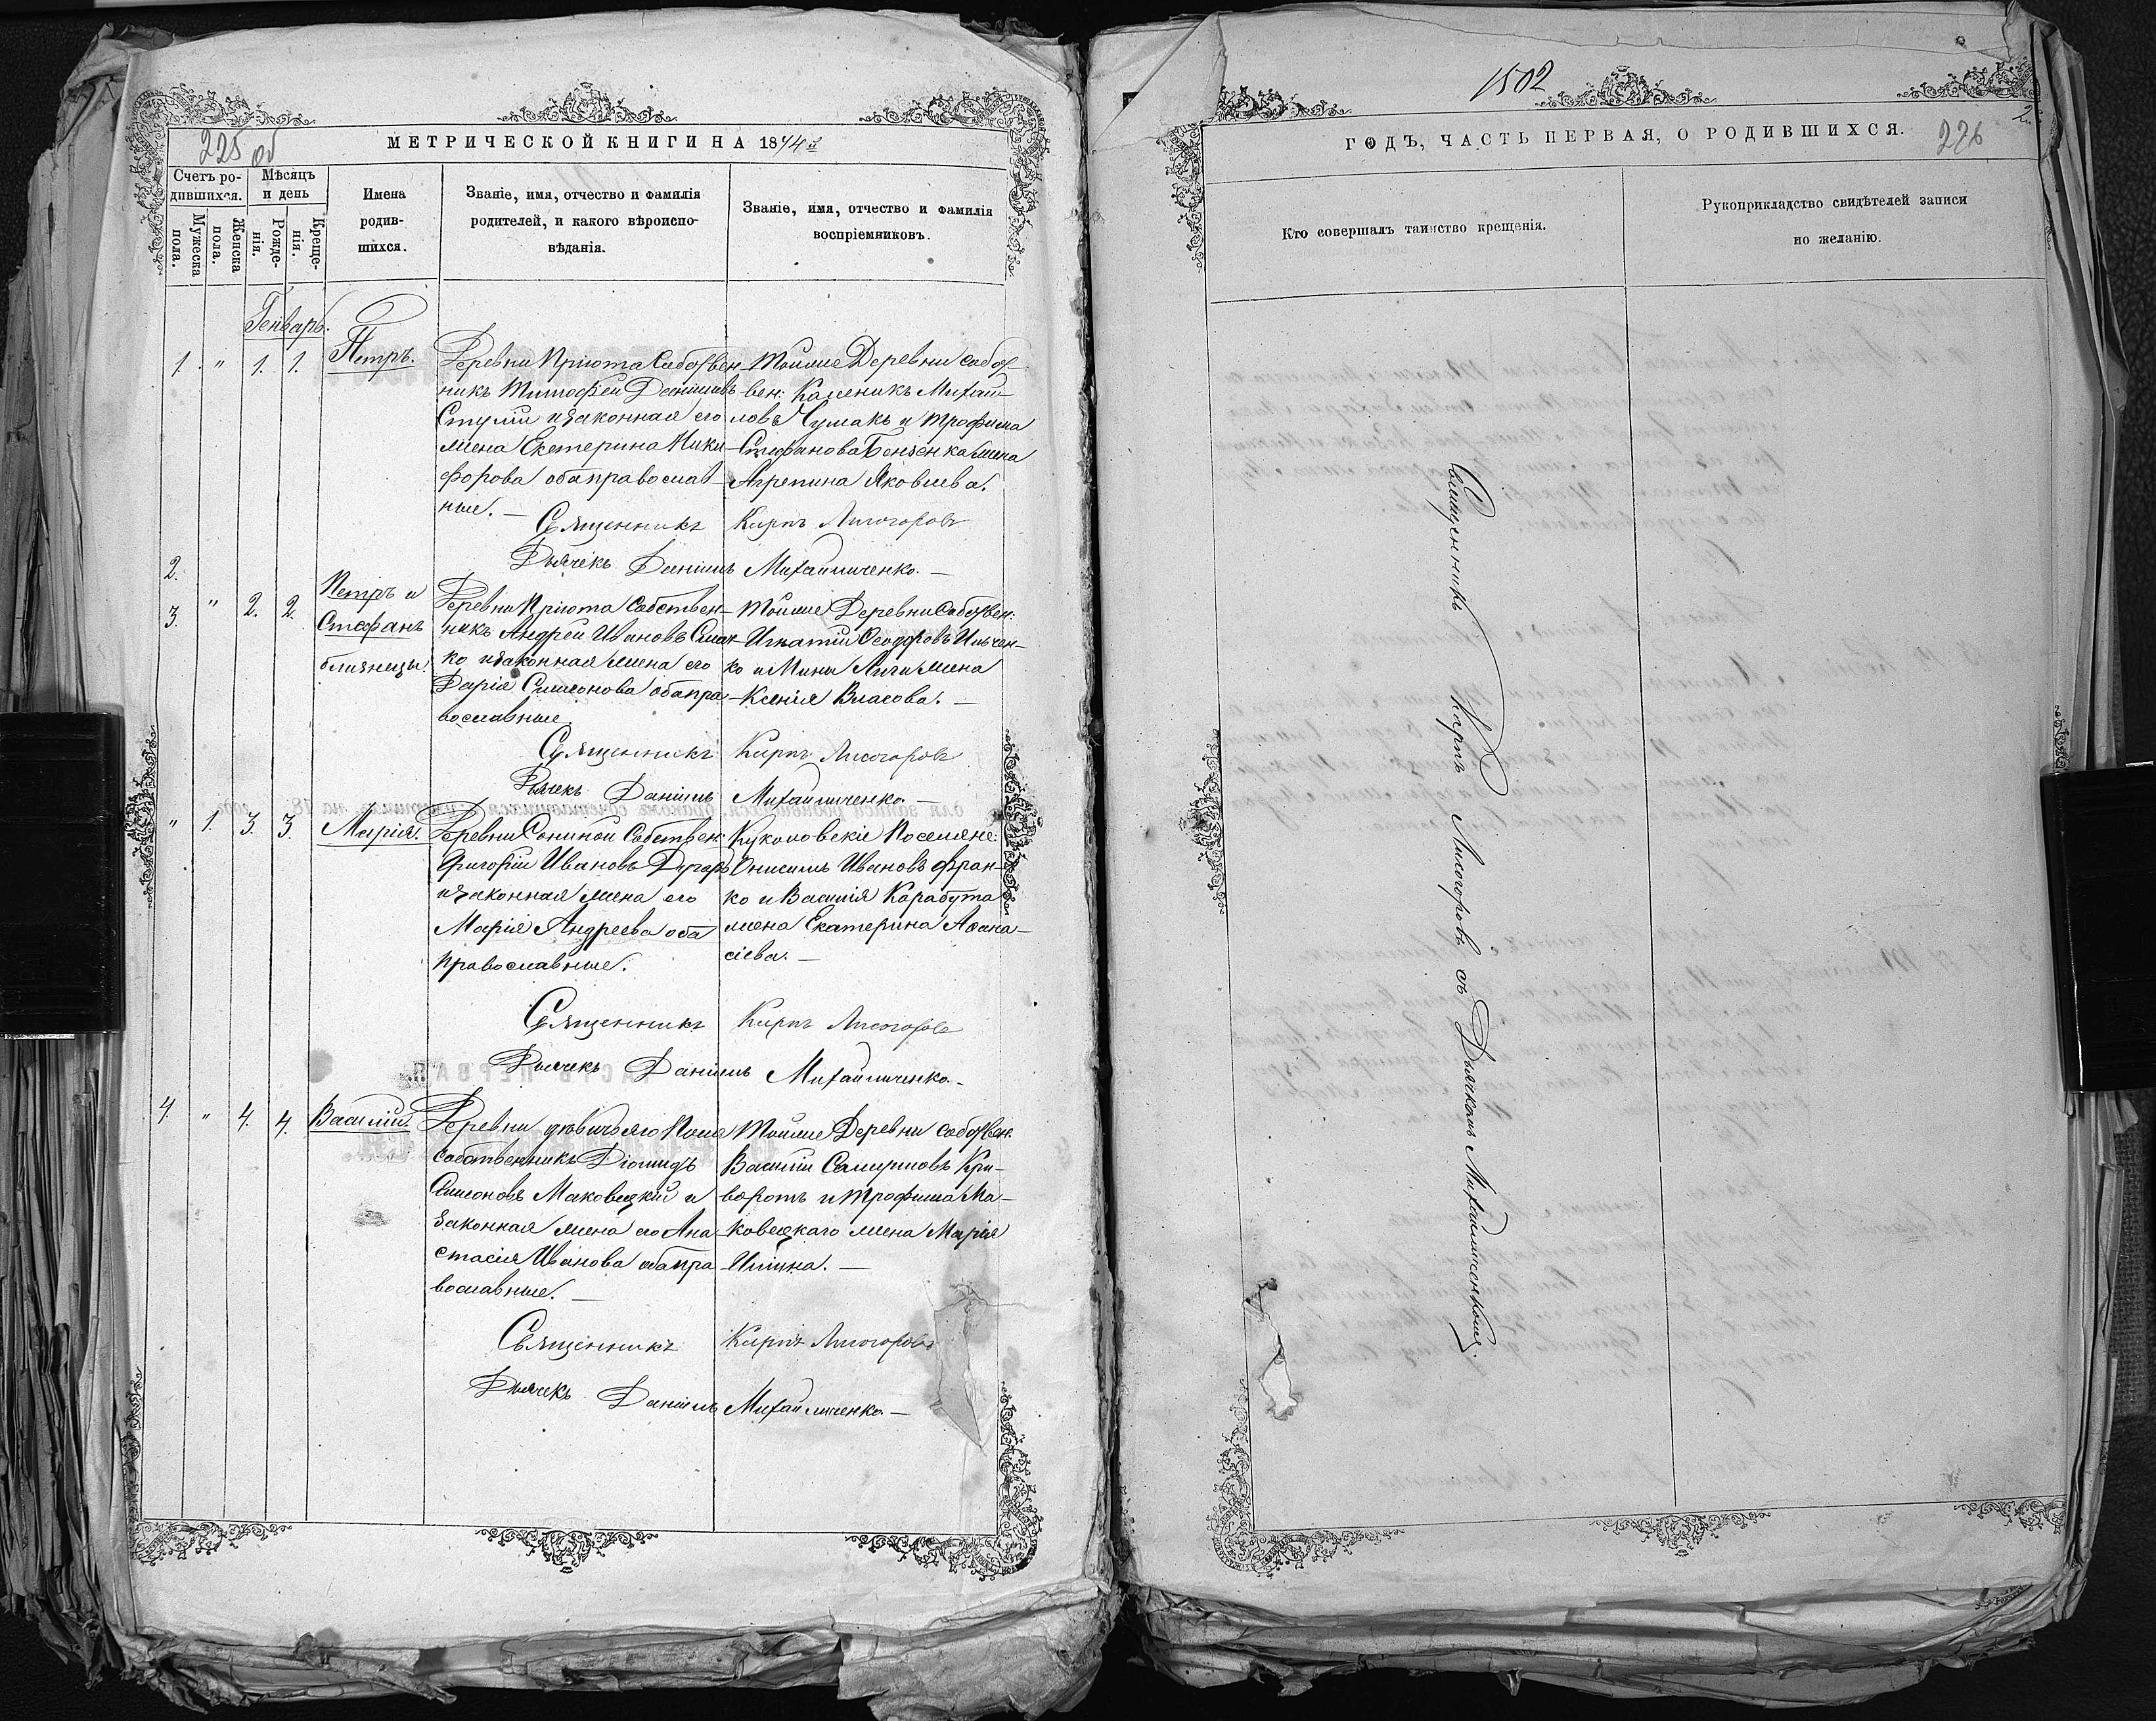 225 об
МЕТРИЧЕСКОЙ КНИГИ НА 1874й
Счетъ ро-
дившихся.
Мѣсяцъ
и день
Мужеска
пола.
Женска
пола.
Рожде-
нія.
Креще-
нія.
Имена
родив-
шихся.
Званіе, имя, отчество и фамилія
родителей, и какого вѣроиспо-
вѣданія.
Званіе, имя, отчество и фамилія
воспріемниковъ.
Генварь.
1. " 1. 1. Петръ.
Деревни Пріюта Собствен-
никъ Тимофей
и законная его
жена Екатерина Ники-
форова оба православ-
ные. —
Тойже Деревни собст-
вен: Каленикъ Михай-
ловъ Чумакъ и Трофима
Стефанова жена
Агрепина Яковлева.
Священникъ Карпъ Лисогоровъ
Дьячекъ Даніилъ Михайличенко. —
2.
3. " 2. 2.
Петръ и
Стефанъ
близнецы.
Деревни Пріюта Собствен-
никъ Андрей Ивановъ
ко и законная жена его
Дарія Симеонова оба пра-
вославные.
Тойже Деревни Собствен:
Игнатій Ѳеодоровъ Ильчен-
ко и Мины жена
Ксенія Власова. —
Священникъ Карпъ Лисогоровъ
Дьячекъ Даніилъ Михайличенко. —
" 1. 3. 3. Марія.
Деревни Сониной Собствен:
Григорій Ивановъ
и законная жена его
Марія Андреева оба
православные.
Куколовскіе Поселяне:
Онисимъ Ивановъ Фран-
ко и Василія Карабута
жена Екатерина Аѳана-
сіева. —
Священникъ Карпъ Лисогоровъ
Дьячекъ Даніилъ Михайличенко. —
4. " 4. 4. Василій.
Деревни
собственникъ Діомидъ
Симеоновъ Маковецкій и
законная жена его Ана-
стасія Иванова оба пра-
вославные. —
Тойже Деревни собствен:
Василій Кри-
воротъ и Трофима Ма-
ковецкаго жена Марія
Ильина. —
Священникъ Карпъ Лисогоровъ
Дьячекъ Даніилъ Михайличенко —
1502
2.
ГОДЪ, ЧАСТЬ ПЕРВАЯ, О РОДИВШИХСЯ.
226
Кто совершалъ таинство крещенія.
Рукоприкладство свидѣтелей записи
по желанію.
Священникъ Карпъ Лисогоровъ съ Дьячкомъ Михайличенкомъ.